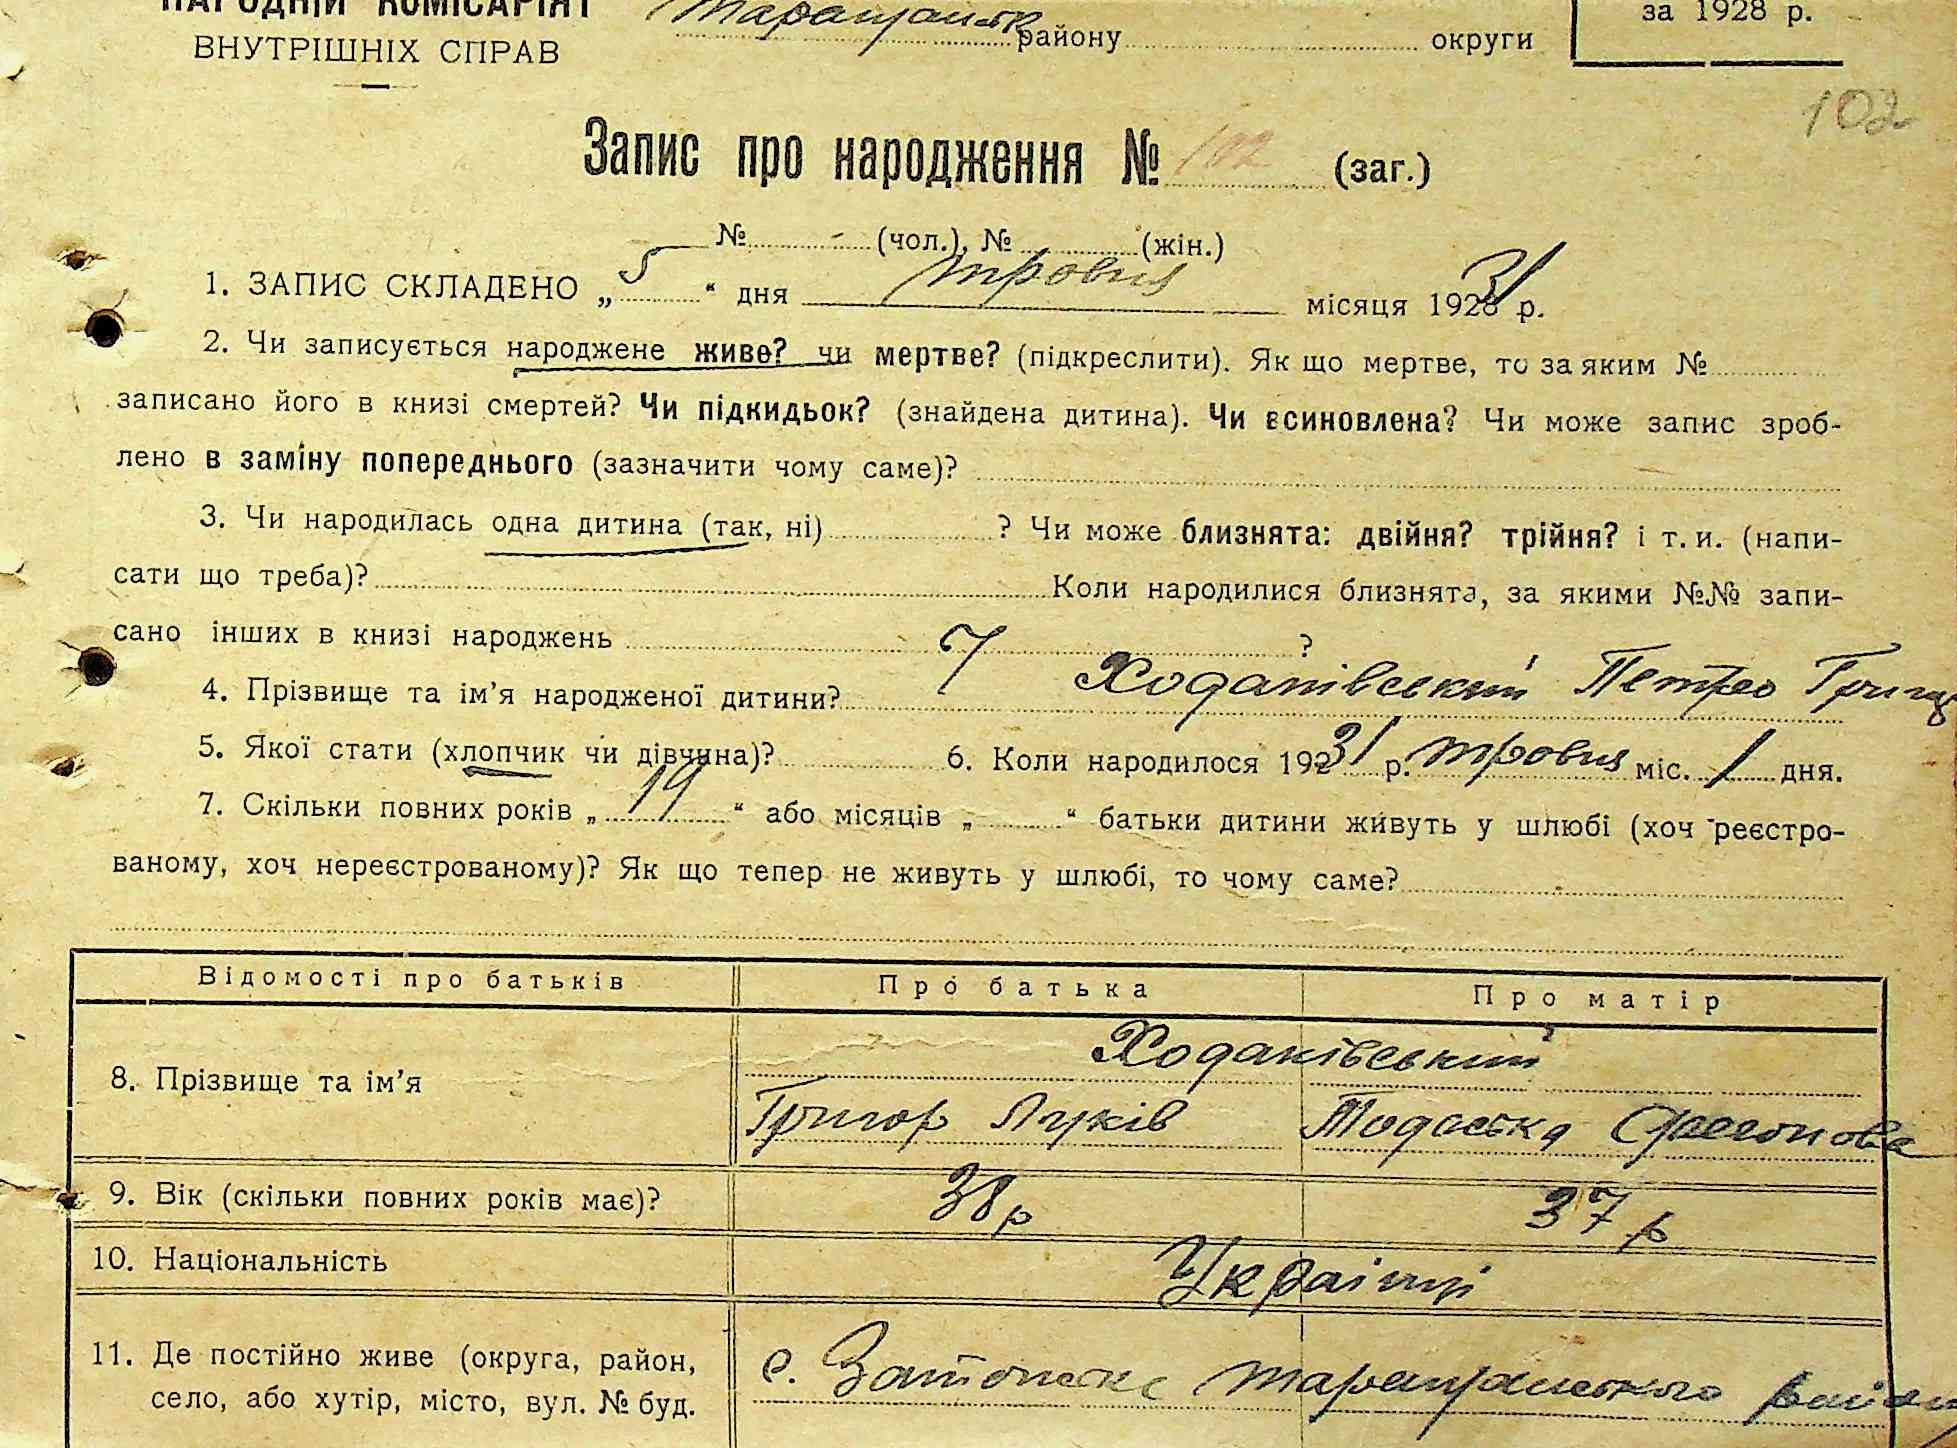 НАРОДНІЙ КОМІСАРІЯТ
ВНУТРІШНІХ СПРАВ
Таращанськ району округи
за 1928 р.
102
Запис про народження № 102 (заг.)
№ - (чол.), № (жін.)
1. ЗАПИС СКЛАДЕНО „ 5 “ дня травня місяця 1931 р.
2. Чи записується народжене живе? чи мертве? (підкреслити). Як що мертве, то за яким №
записано його в книзі смертей? Чи підкидьок? (знайдена дитина). Чи всиновлена? Чи може запис зроб-
лено в заміну попереднього (зазначити чому саме)?
3. Чи народилась одна дитина (так, ні) ? Чи може близнята: двійня? трійня? і т. и. (напи-
сати що треба)? Коли народилися близнята, за якими №№ запи-
сано інших в книзі народжень ?
4. Прізвище та ім’я народженої дитини? Ходаківський Петро Григ
5. Якої стати (хлопчик чи дівчина)? 6. Коли народилося 1931 р. травня міс. 1 дня.
7. Скільки повних років „ 19 “ або місяців „ “ батьки дитини живуть у шлюбі (хоч реєстро-
ваному, хоч нереєстрованому)? Як що тепер не живуть у шлюбі, то чому саме?
Відомості про батьків Про батька Про матір
8. Прізвище та ім’я Ходаківський
Григор Луків Тодоська
9. Вік (скільки повних років має)? 38 р 37 р
10. Національність Українці
11. Де постійно живе (округа, район,
село, або хутір, місто, вул. № буд.
с. Таращанського району